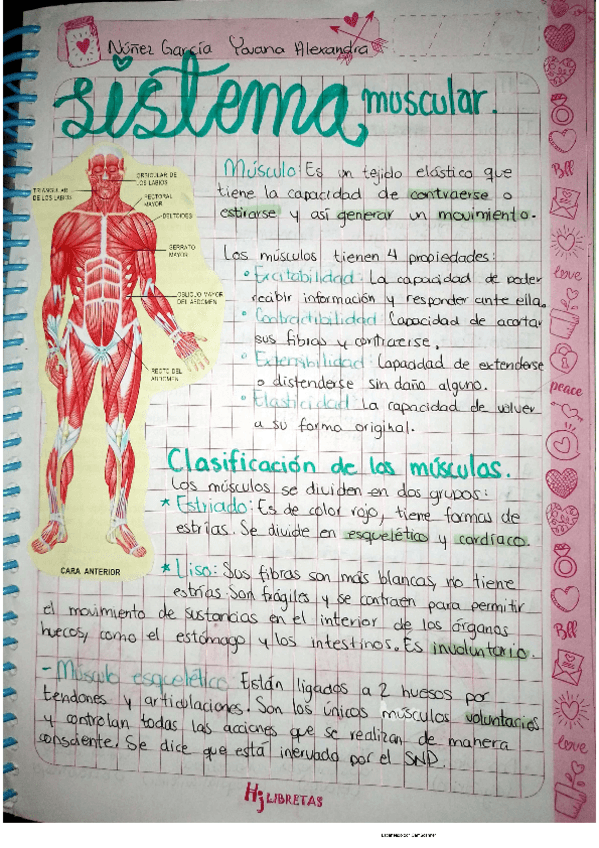 Núñez García Yovana Alexandra
sistema muscular.
Músculo: Es un tejido elástico que
tiene la capacidad de contraerse o
estirarse y así generar un movimiento.
TRIANGULAR
DE LOS LABIOS
ORBICULAR DE
LOS LABIOS
PECTORAL
MAYOR
DELTOIDES
SERRATO
MAYOR
OBLICUO MAYOR
DEL ABDOMEN
RECTO DEL
ABDOMEN
CARA ANTERIOR
Los músculos tienen 4 propiedades:
• Excitabilidad: La capacidad de poder
recibir información y responder ante ella.
• Contractibilidad: Capacidad de acortar
sus fibras y contraerse.
• Extensibilidad: Capacidad de extenderse
o distenderse sin daño alguno.
• Elasticidad: La capacidad de volver
a su forma original.
Clasificación de los músculos.
Los músculos se dividen en dos grupos:
* Estriado: Es de color rojo, tiene formas de
estrías. Se divide en esquelético y cardíaco.
* Liso: Sus fibras son más blancas, no tiene
estrías. Son frágiles y se contraen para permitir
el movimiento de sustancias en el interior de los órganos
huecos, como el estómago y los intestinos. Es involuntario.
- Músculo esquelético Están ligados a 2 huesos por
tendones y articulaciones. Son los únicos músculos voluntarios
y controlan todas las acciones que se realizan de manera
consciente. Se dice que está inervado por el SNP.
Bff
love
peace
Bff
love
Hj LIBRETAS